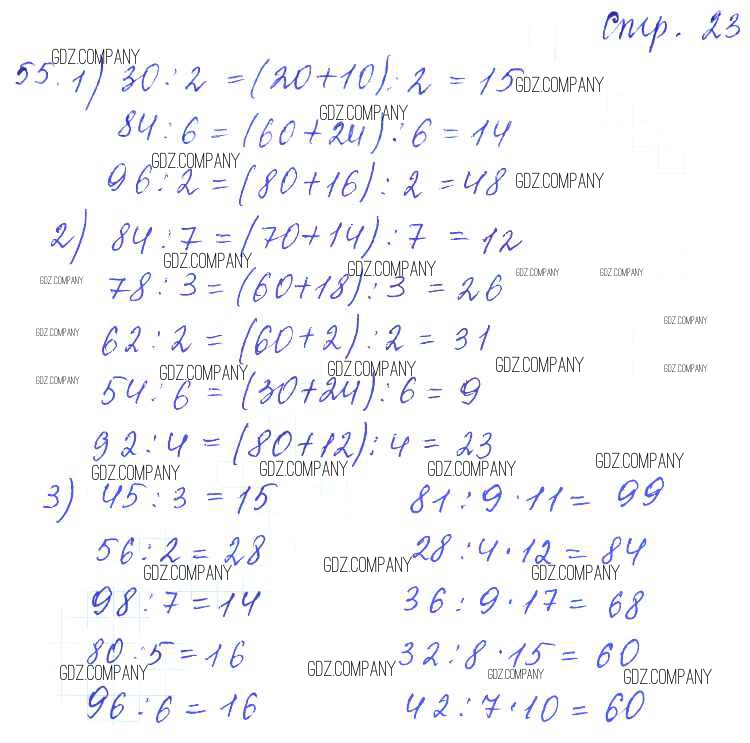 Стр. 23
GDZ.COMPANY
55. 1) 30 : 2 = (20+10) : 2 = 15
GDZ.COMPANY
GDZ.COMPANY
84 : 6 = (60+24) : 6 = 14
GDZ.COMPANY
96 : 2 = (80+16) : 2 = 48
GDZ.COMPANY
2) 84 : 7 = (70+14) : 7 = 12
GDZ.COMPANY GDZ.COMPANY GDZ.COMPANY GDZ.COMPANY
GDZ.COMPANY
78 : 3 = (60+18) : 3 = 26
GDZ.COMPANY
GDZ.COMPANY
62 : 2 = (60+2) : 2 = 31
GDZ.COMPANY GDZ.COMPANY GDZ.COMPANY GDZ.COMPANY
GDZ.COMPANY
54 : 6 = (30+24) : 6 = 9
92 : 4 = (80+12) : 4 = 23
GDZ.COMPANY GDZ.COMPANY GDZ.COMPANY GDZ.COMPANY
3) 45 : 3 = 15 81 : 9 · 11 = 99
56 : 2 = 28 28 : 4 · 12 = 84
GDZ.COMPANY GDZ.COMPANY GDZ.COMPANY
98 : 7 = 14 36 : 9 · 17 = 68
80 : 5 = 16 32 : 8 · 15 = 60
GDZ.COMPANY GDZ.COMPANY GDZ.COMPANY GDZ.COMPANY
96 : 6 = 16 42 : 7 · 10 = 60